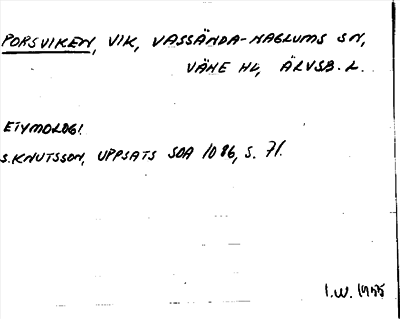 PORSVIKEN, VIK, VASSÄNDA-NAGLUMS SN,
VÄNE HD, ÄLVSB. L.
ETYMOLOGI
S. KNUTSSON, UPPSATS SOA 1086, S. 71.
I.W. 1955